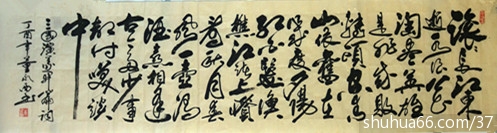 滚滚长江东
逝水浪花
淘尽英雄
是非成败
转头空青
山依旧在
几度夕阳
红白发渔
樵江渚上惯
看秋月春
风一壶浊
酒喜相逢
古今多少事
都付笑谈
中
三国演义开篇词
丁酉年
shuhua66.com/37